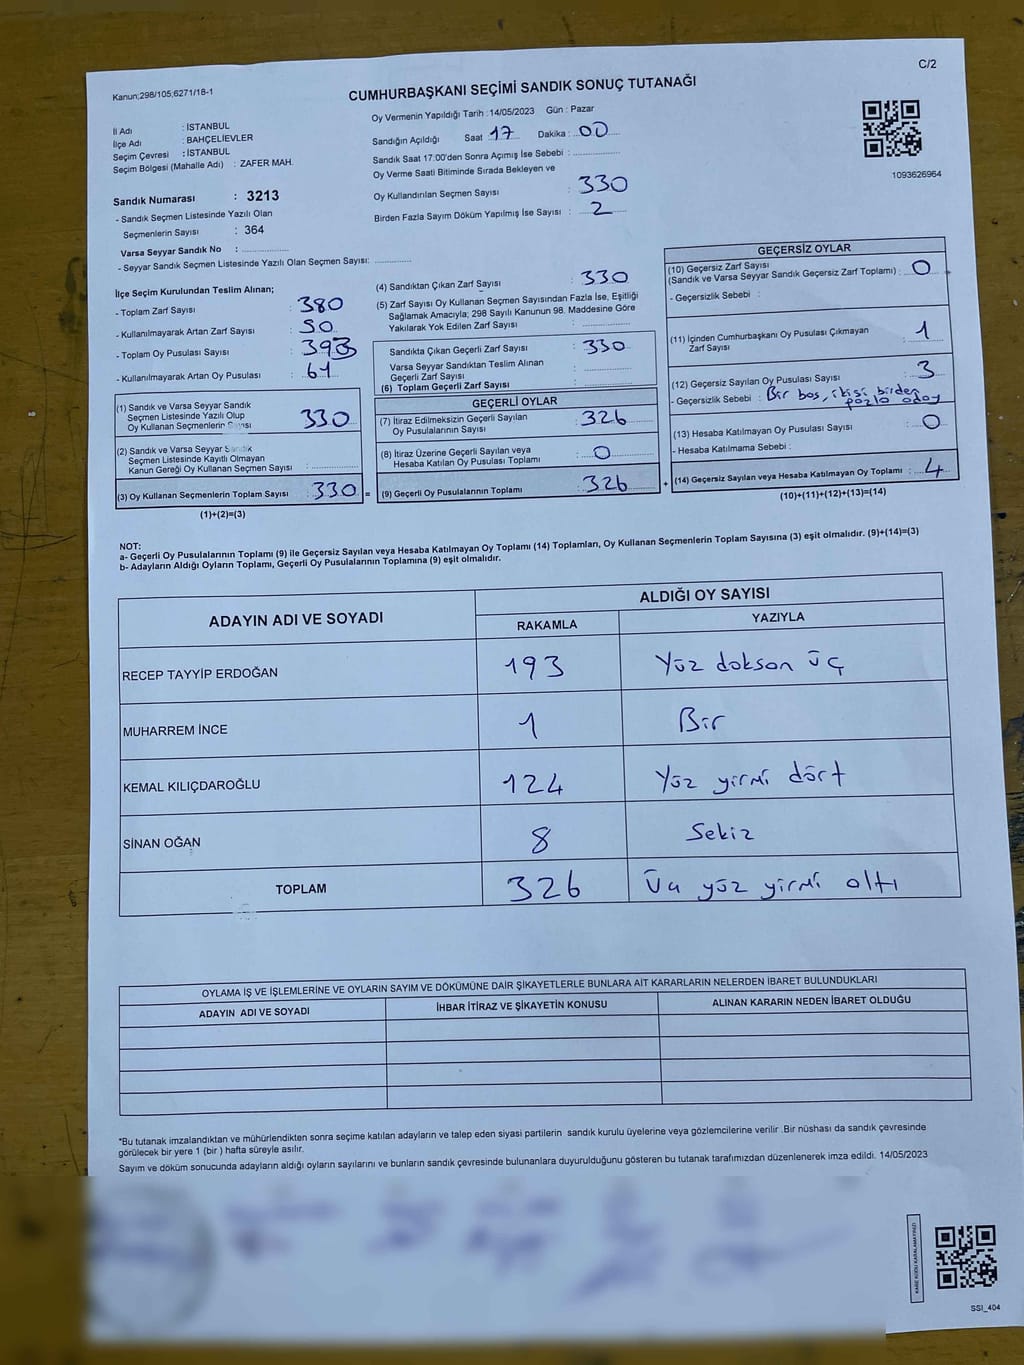 C/2
Kanun;298/105;6271/18-1
CUMHURBAŞKANI SEÇİMİ SANDIK SONUÇ TUTANAĞI
İl Adı : İSTANBUL
İlçe Adı : BAHÇELİEVLER
Seçim Çevresi : İSTANBUL
Seçim Bölgesi (Mahalle Adı) : ZAFER MAH.
Oy Vermenin Yapıldığı Tarih : 14/05/2023 Gün : Pazar
Sandığın Açıldığı Saat 17 Dakika : 00
Sandık Saat 17:00'den Sonra Açımış İse Sebebi :
Oy Verme Saati Bitiminde Sırada Bekleyen ve
Oy Kullandırılan Seçmen Sayısı : 330
Birden Fazla Sayım Döküm Yapılmış İse Sayısı : 2
1093626964
Sandık Numarası : 3213
- Sandık Seçmen Listesinde Yazılı Olan
Seçmenlerin Sayısı : 364
Varsa Seyyar Sandık No :
- Seyyar Sandık Seçmen Listesinde Yazılı Olan Seçmen Sayısı:
İlçe Seçim Kurulundan Teslim Alınan;
- Toplam Zarf Sayısı : 380
- Kullanılmayarak Artan Zarf Sayısı : 50
- Toplam Oy Pusulası Sayısı : 393
- Kullanılmayarak Artan Oy Pusulası :
(1) Sandık ve Varsa Seyyar Sandık
Seçmen Listesinde Yazılı Olup
Oy Kullanan Seçmenlerin Sayısı : 330
(2) Sandık ve Varsa Seyyar Sandık
Seçmen Listesinde Kayıtlı Olmayan
Kanun Gereği Oy Kullanan Seçmen Sayısı :
(3) Oy Kullanan Seçmenlerin Toplam Sayısı : 330 =
(1)+(2)=(3)
(4) Sandıktan Çıkan Zarf Sayısı : 330
(5) Zarf Sayısı Oy Kullanan Seçmen Sayısından Fazla İse, Eşitliği
Sağlamak Amacıyla; 298 Sayılı Kanunun 98. Maddesine Göre
Yakılarak Yok Edilen Zarf Sayısı :
Sandıkta Çıkan Geçerli Zarf Sayısı : 330
Varsa Seyyar Sandıktan Teslim Alınan
Geçerli Zarf Sayısı :
(6) Toplam Geçerli Zarf Sayısı :
GEÇERLİ OYLAR
(7) İtiraz Edilmeksizin Geçerli Sayılan
Oy Pusulalarının Sayısı : 326
(8) İtiraz Üzerine Geçerli Sayılan veya
Hesaba Katılan Oy Pusulası Toplamı : 0
(9) Geçerli Oy Pusulalarının Toplamı : 326 +
GEÇERSİZ OYLAR
(10) Geçersiz Zarf Sayısı
(Sandık ve Varsa Seyyar Sandık Geçersiz Zarf Toplamı) : 0
- Geçersizlik Sebebi :
(11) İçinden Cumhurbaşkanı Oy Pusulası Çıkmayan
Zarf Sayısı : 1
(12) Geçersiz Sayılan Oy Pusulası Sayısı : 3
- Geçersizlik Sebebi : Bir boş, ikisi birden
fazla aday
(13) Hesaba Katılmayan Oy Pusulası Sayısı : 0
- Hesaba Katılmama Sebebi :
(14) Geçersiz Sayılan veya Hesaba Katılmayan Oy Toplamı : 4
(10)+(11)+(12)+(13)=(14)
NOT:
a- Geçerli Oy Pusulalarının Toplamı (9) ile Geçersiz Sayılan veya Hesaba Katılmayan Oy Toplamı (14) Toplamları, Oy Kullanan Seçmenlerin Toplam Sayısına (3) eşit olmalıdır. (9)+(14)=(3)
b- Adayların Aldığı Oyların Toplamı, Geçerli Oy Pusulalarının Toplamına (9) eşit olmalıdır.
ADAYIN ADI VE SOYADI
ALDIĞI OY SAYISI
RAKAMLA YAZIYLA
RECEP TAYYİP ERDOĞAN 193 Yüz doksan üç
MUHARREM İNCE 1 Bir
KEMAL KILIÇDAROĞLU 124 Yüz yirmi dört
SİNAN OĞAN 8 Sekiz
TOPLAM 326 Üç yüz yirmi altı
OYLAMA İŞ VE İŞLEMLERİNE VE OYLARIN SAYIM VE DÖKÜMÜNE DAİR ŞİKAYETLERLE BUNLARA AİT KARARLARIN NELERDEN İBARET BULUNDUKLARI
ADAYIN ADI VE SOYADI İHBAR İTİRAZ VE ŞİKAYETİN KONUSU ALINAN KARARIN NEDEN İBARET OLDUĞU
*Bu tutanak imzalandıktan ve mühürlendikten sonra seçime katılan adayların ve talep eden siyasi partilerin sandık kurulu üyelerine veya gözlemcilerine verilir .Bir nüshası da sandık çevresinde
görülecek bir yere 1 (bir ) hafta süreyle asılır.
Sayım ve döküm sonucunda adayların aldığı oyların sayılarını ve bunların sandık çevresinde bulunanlara duyurulduğunu gösteren bu tutanak tarafımızdan düzenlenerek imza edildi. 14/05/2023
KARE KODU KARALAMAYINIZ!
SSI_404